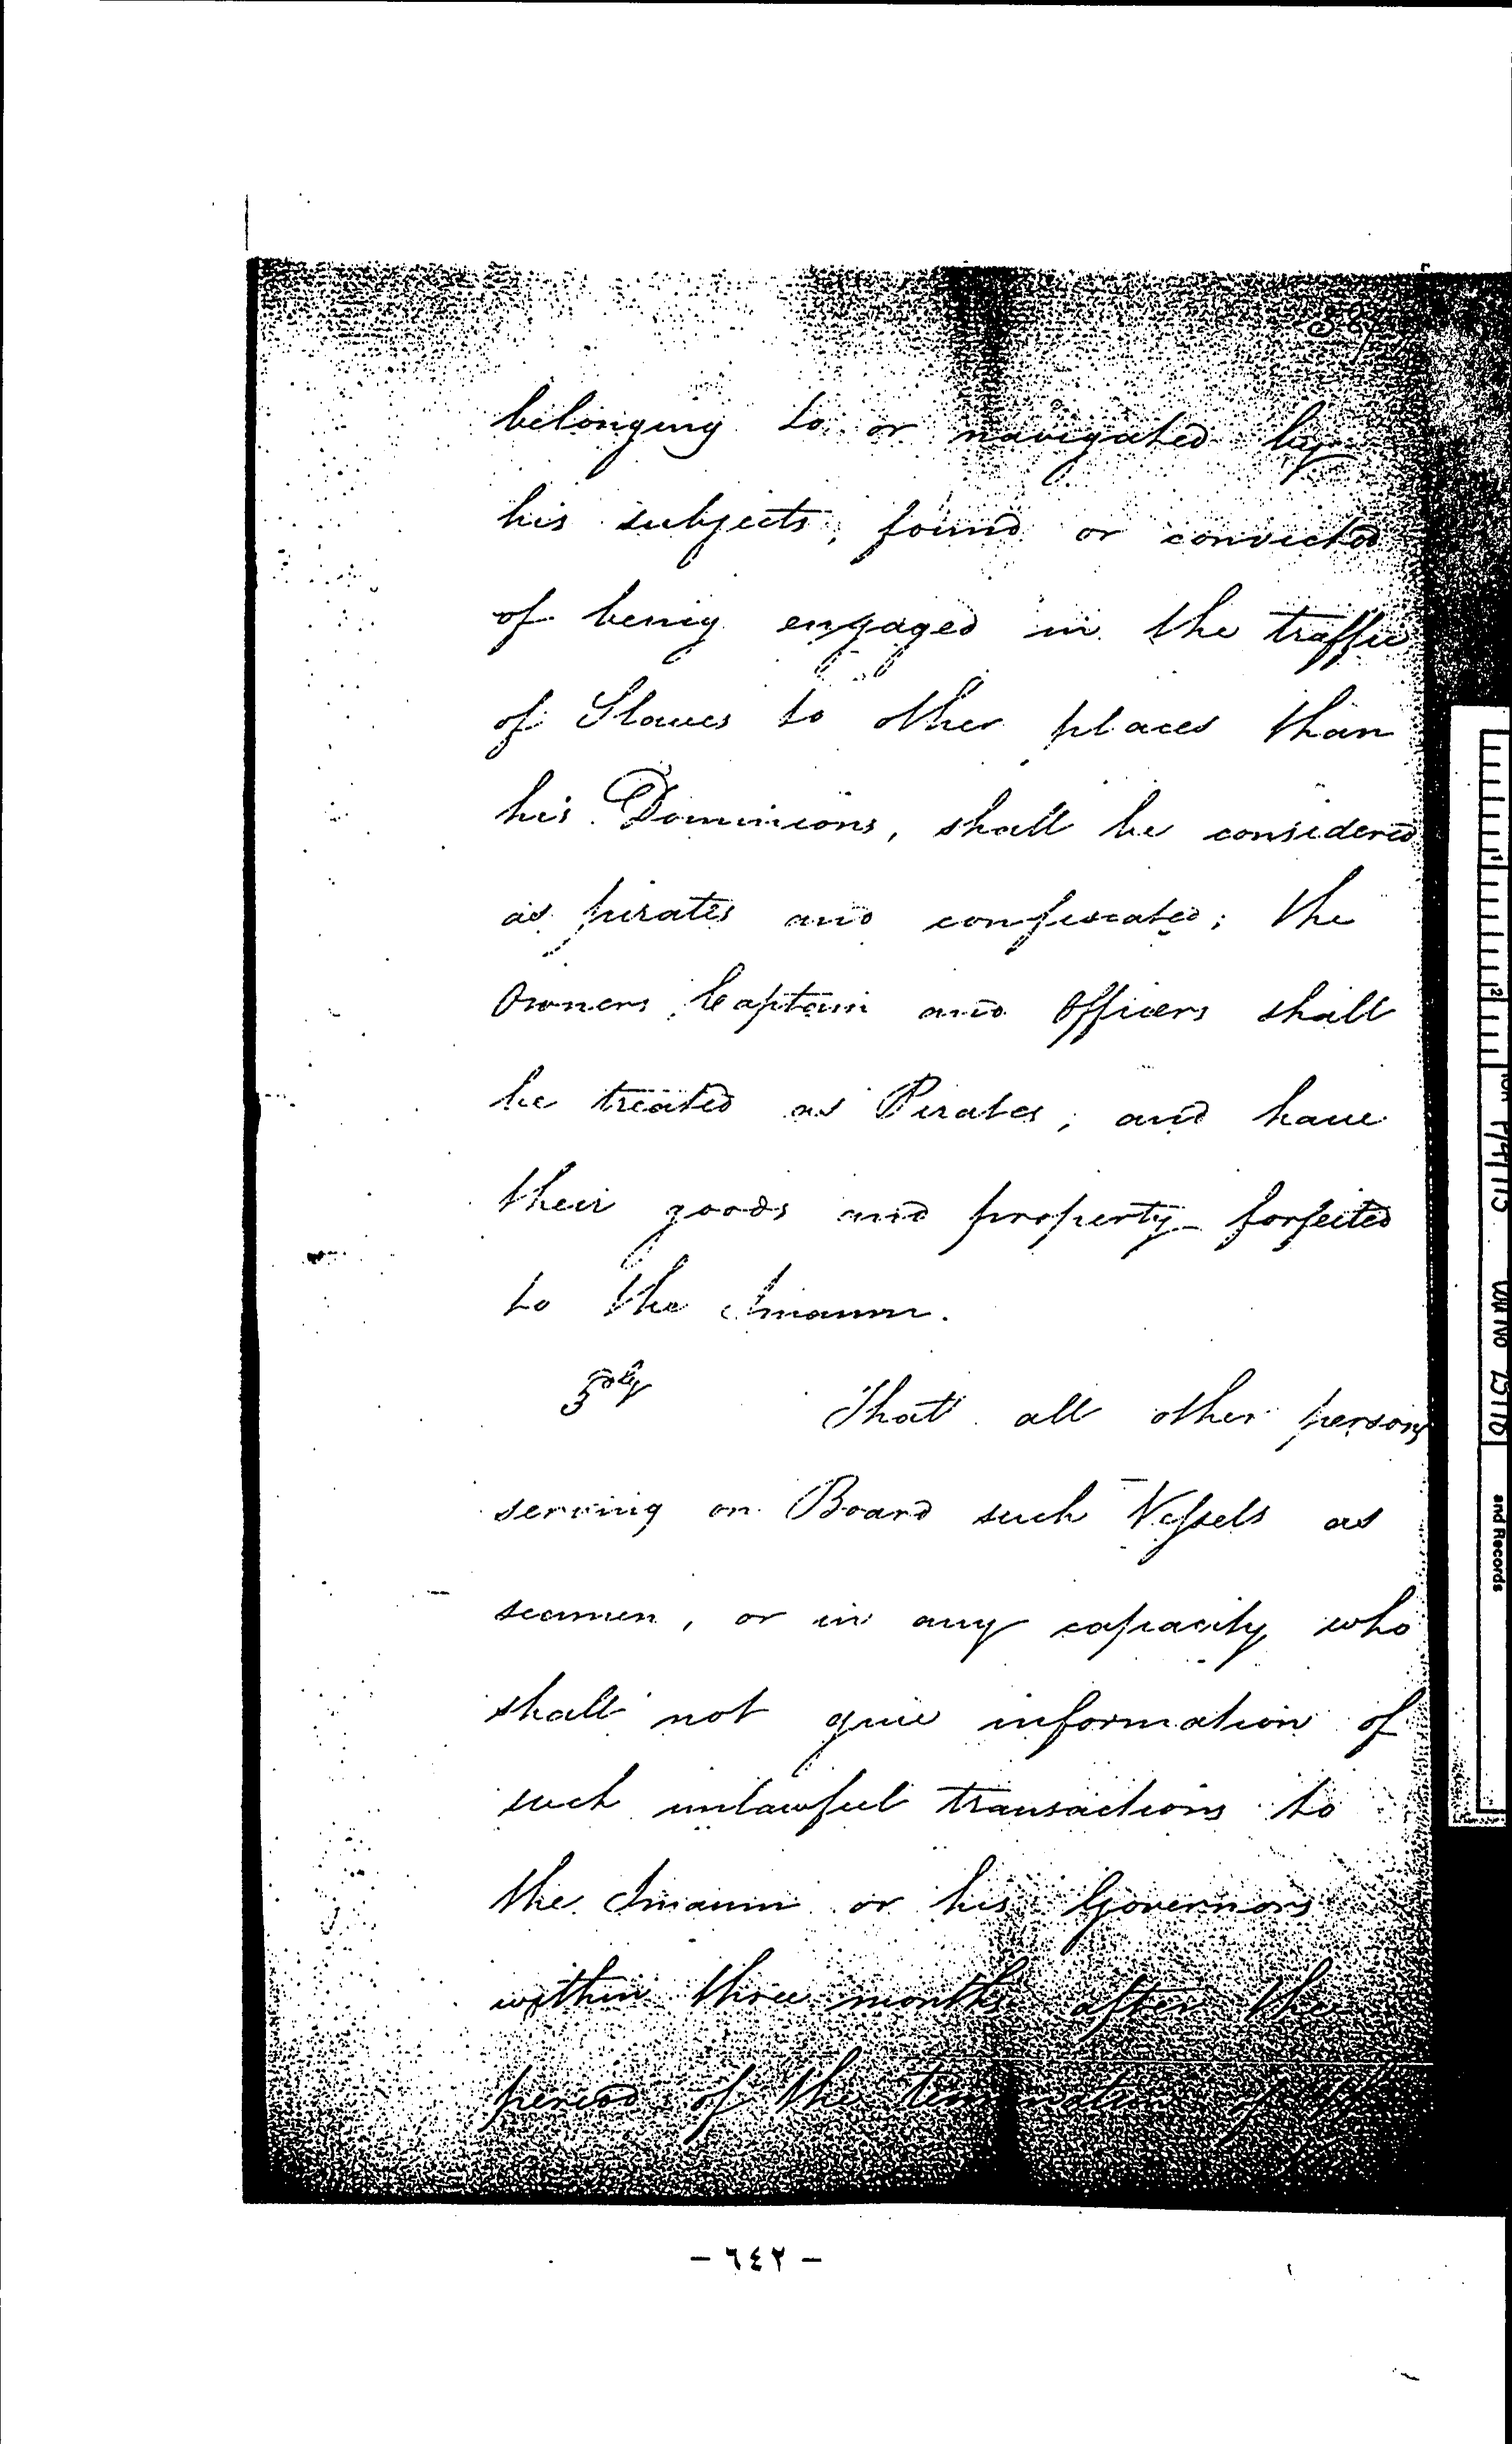 belonging to or navigated by
his subjects, found or convicted
of being engaged in the traffic
of Slaves to other places than
his Dominions, shall be considered
as pirates and confiscated; the
Owners, Captain and Officers shall
be treated as Pirates, and have
their goods and property forfeited
to the Imaum.
3dly That all other persons
serving on Board such Vessels as
seamen, or in any capacity who
shall not give information of
such unlawful transactions to
the Imaum or his Governors
within three months after the
period of the termination of
- ٦٤٢ -
and Records